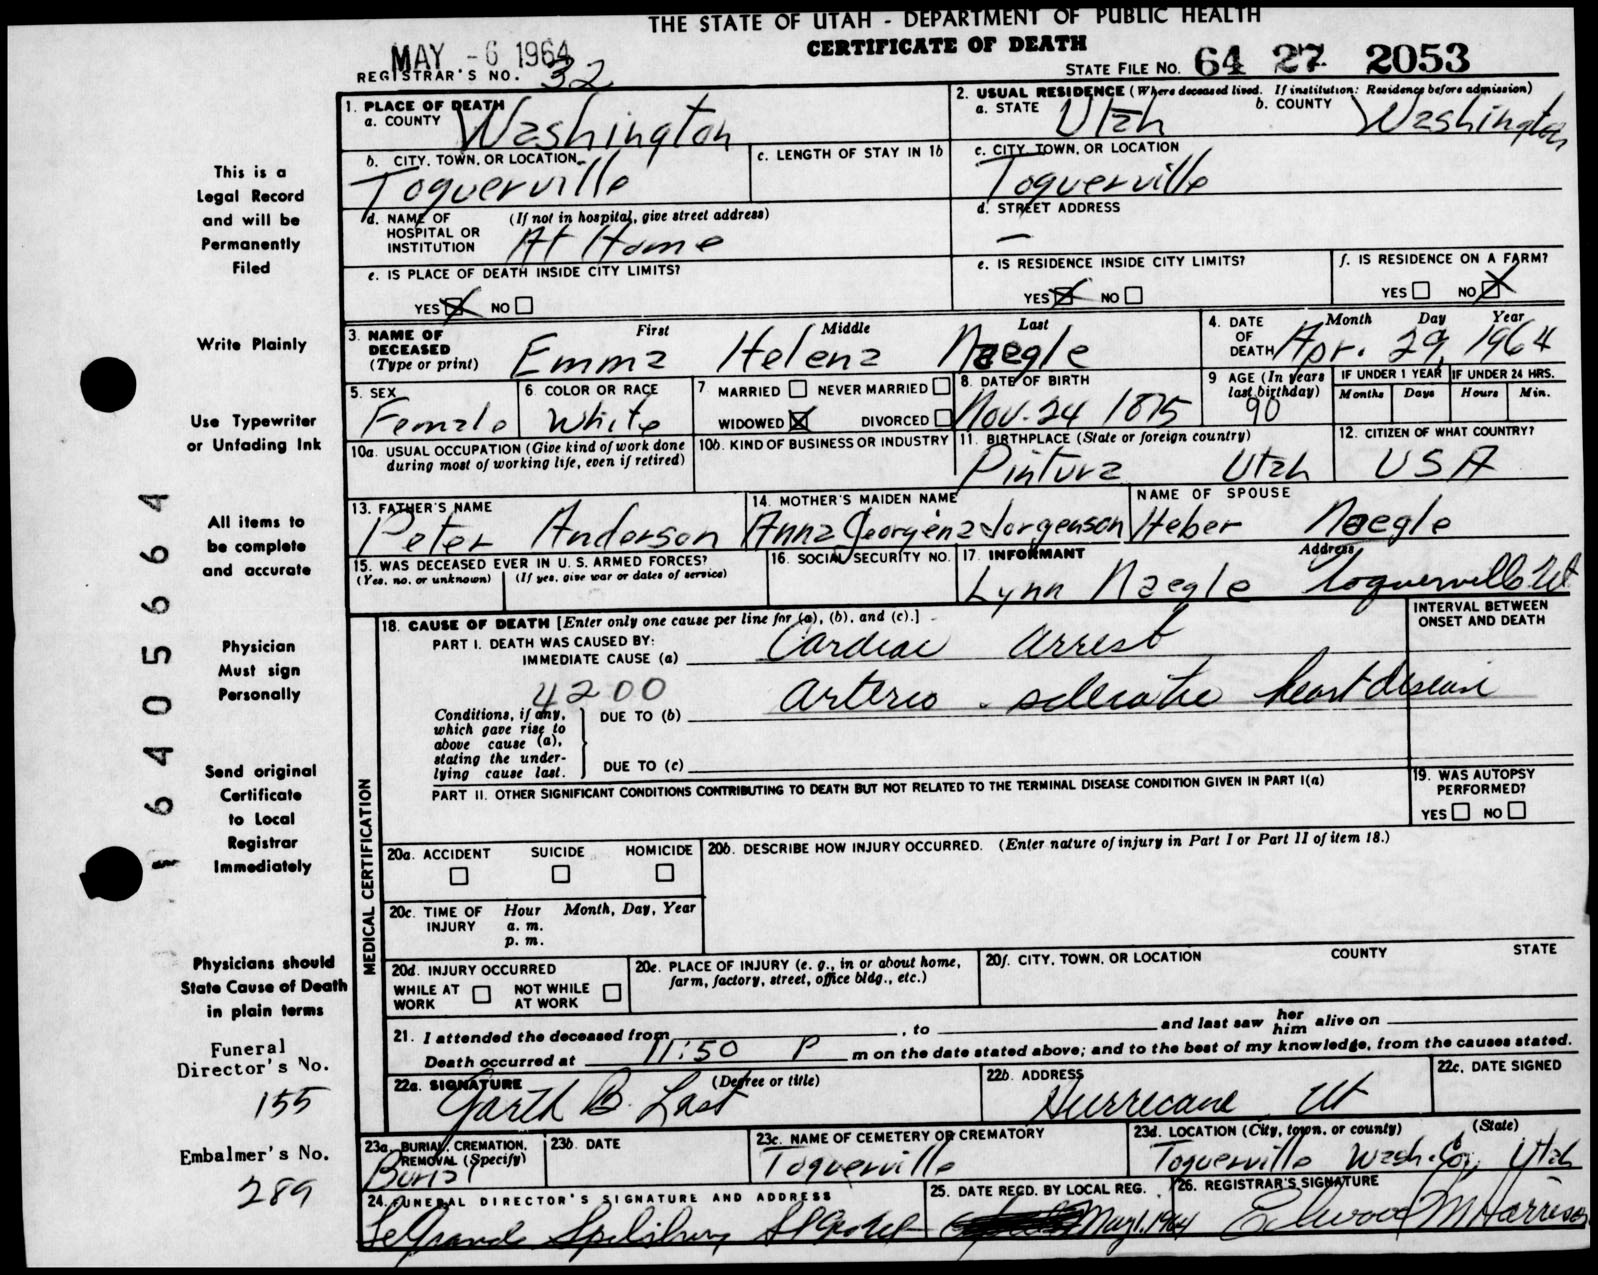 THE STATE OF UTAH - DEPARTMENT OF PUBLIC HEALTH
CERTIFICATE OF DEATH
MAY - 6 1964
REGISTRAR'S NO. 32
STATE FILE NO. 64 27 2053
1. PLACE OF DEATH
a. COUNTY Washington
2. USUAL RESIDENCE (Where deceased lived. If institution: Residence before admission)
a. STATE Utah b. COUNTY Washington
b. CITY, TOWN, OR LOCATION Toquerville
c. LENGTH OF STAY IN 1b
c. CITY, TOWN, OR LOCATION Toquerville
d. NAME OF HOSPITAL OR INSTITUTION (If not in hospital, give street address) At Home
d. STREET ADDRESS —
e. IS PLACE OF DEATH INSIDE CITY LIMITS?
YES NO
e. IS RESIDENCE INSIDE CITY LIMITS?
YES NO
f. IS RESIDENCE ON A FARM?
YES NO
3. NAME OF DECEASED (Type or print)
First Middle Last
Emma Helena Naegle
4. DATE OF DEATH Month Day Year
Apr. 29, 1964
5. SEX Female
6. COLOR OR RACE White
7. MARRIED NEVER MARRIED
WIDOWED DIVORCED
8. DATE OF BIRTH Nov. 24 1875
9 AGE (In years last birthday) 90
IF UNDER 1 YEAR Months Days
IF UNDER 24 HRS. Hours Min.
10a. USUAL OCCUPATION (Give kind of work done during most of working life, even if retired)
10b. KIND OF BUSINESS OR INDUSTRY
11. BIRTHPLACE (State or foreign country) Pintura Utah
12. CITIZEN OF WHAT COUNTRY? USA
13. FATHER'S NAME Peter Anderson
14. MOTHER'S MAIDEN NAME Anna Georgena Jorgenson
NAME OF SPOUSE Heber Naegle
15. WAS DECEASED EVER IN U. S. ARMED FORCES?
(Yes, no, or unknown) (If yes, give war or dates of service)
16. SOCIAL SECURITY NO.
17. INFORMANT Address
Lynn Naegle Toquerville Ut
18. CAUSE OF DEATH [Enter only one cause per line for (a), (b), and (c).]
INTERVAL BETWEEN ONSET AND DEATH
PART I. DEATH WAS CAUSED BY:
IMMEDIATE CAUSE (a) Cardiac arrest
4200
Conditions, if any, which gave rise to above cause (a), stating the underlying cause last.
DUE TO (b) Arterio-sclerotic heart disease
DUE TO (c)
PART II. OTHER SIGNIFICANT CONDITIONS CONTRIBUTING TO DEATH BUT NOT RELATED TO THE TERMINAL DISEASE CONDITION GIVEN IN PART I(a)
19. WAS AUTOPSY PERFORMED?
YES NO
MEDICAL CERTIFICATION
20a. ACCIDENT SUICIDE HOMICIDE
20b. DESCRIBE HOW INJURY OCCURRED. (Enter nature of injury in Part I or Part II of item 18.)
20c. TIME OF INJURY Hour Month, Day, Year
a. m.
p. m.
20d. INJURY OCCURRED
WHILE AT WORK NOT WHILE AT WORK
20e. PLACE OF INJURY (e. g., in or about home, farm, factory, street, office bldg., etc.)
20f. CITY, TOWN, OR LOCATION COUNTY STATE
21. I attended the deceased from , to and last saw her him alive on
Death occurred at 11:50 P m on the date stated above; and to the best of my knowledge, from the causes stated.
22a. SIGNATURE (Degree or title) Garth B. Last
22b. ADDRESS Hurricane Ut
22c. DATE SIGNED
23a. BURIAL, CREMATION, REMOVAL (Specify) Burial
23b. DATE
23c. NAME OF CEMETERY OR CREMATORY Toquerville
23d. LOCATION (City, town, or county) (State)
Toquerville Wash. Co, Utah
24. FUNERAL DIRECTOR'S SIGNATURE AND ADDRESS
LeGrande Spilsbury
25. DATE RECD. BY LOCAL REG. May 1, 1964
26. REGISTRAR'S SIGNATURE Elwood M Harrison
This is a
Legal Record
and will be
Permanently
Filed
Write Plainly
Use Typewriter
or Unfading Ink
All items to
be complete
and accurate
Physician
Must sign
Personally
Send original
Certificate
to Local
Registrar
Immediately
Physicians should
State Cause of Death
in plain terms
Funeral
Director's No.
155
Embalmer's No.
289
1 6405664